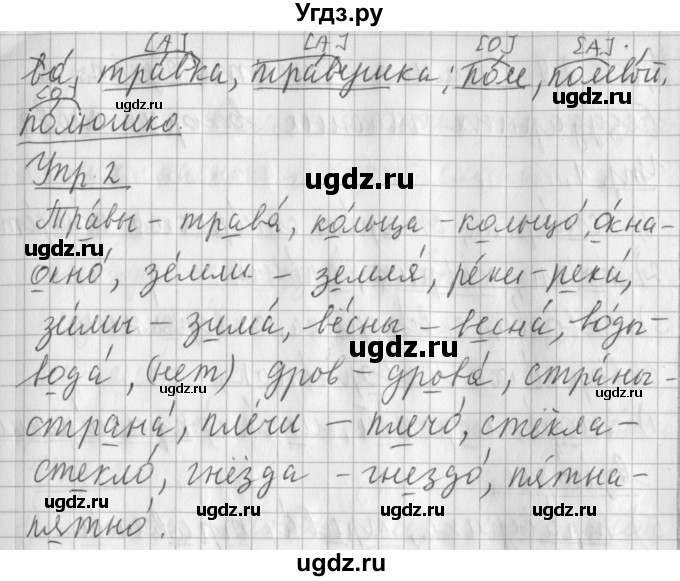 Угдз.ру
[А] [А] [О] [А].
ва́, тра́вка, тра́вушка; по́ле, полево́й,
[О]
полюшко.
Упр. 2
Тра́вы - трава́, ко́льца - кольцо́, о́кна -
окно́, зе́мли - земля́, ре́ки - река́,
зи́мы - зима́, вёсны - весна́, во́ды -
вода́, (нет) дров - дрова́, стра́ны -
страна́, пле́чи - плечо́, стёкла -
стекло́, гнёзда - гнездо́, пя́тна -
пятно́.
ugdz.ru
ugdz.ru
ugdz.ru
ugdz.ru
ugdz.ru
ugdz.ru
ugdz.ru
ugdz.ru
ugdz.ru
ugdz.ru
ugdz.ru
ugdz.ru
ugdz.ru
ugdz.ru